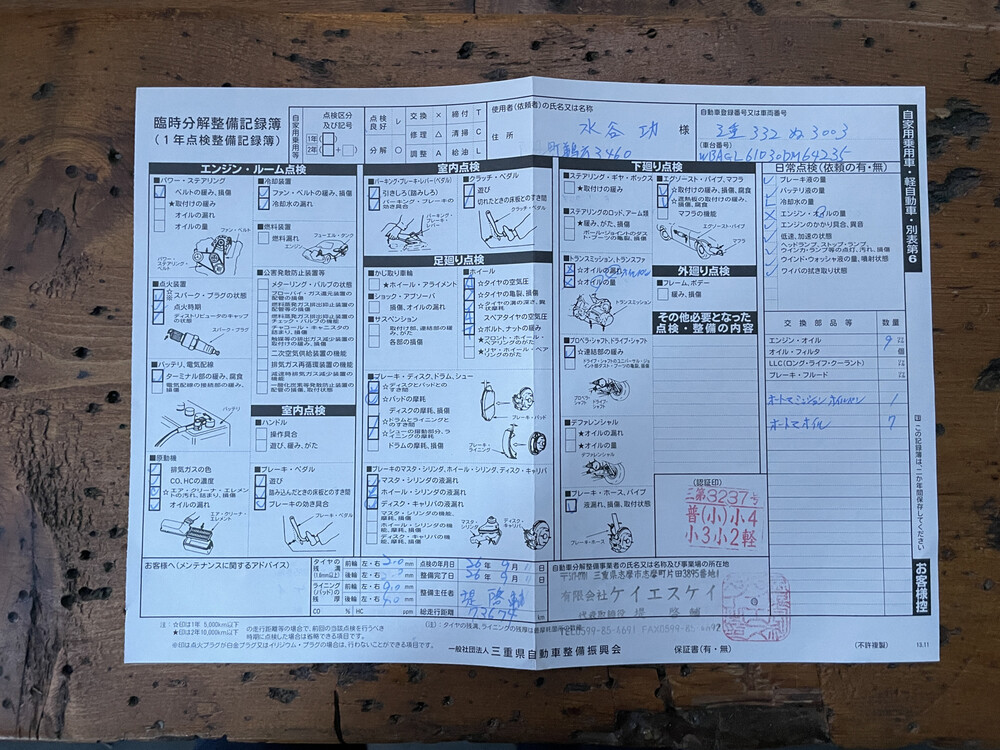 臨時分解整備記録簿
(1年点検整備記録簿)
自家用乗用等
点検区分及び記号
1年
2年
点検良好 レ
交換 ×
締付 T
修理 △
清掃 C
分解 ○
調整 A
給油 L
使用者(依頼者)の氏名又は名称
水谷 功 様
住所
3460
自動車登録番号又は車両番号
332 ぬ 3003
(車台番号)
自家用乗用車・軽自動車・別表第6
エンジン・ルーム点検
■パワー・ステアリング
ベルトの緩み、損傷
★取付けの緩み
オイルの漏れ
オイルの量
パワー・ステアリング・ベルト
ファン・ベルト
■点火装置
スパーク・プラグの状態
点火時期
ディストリビュータのキャップの状態
スパーク・プラグ
■バッテリ、電気配線
ターミナル部の緩み、腐食
電気配線の接続部の緩み、損傷
バッテリ
■原動機
排気ガスの色
CO、HCの濃度
☆エア・クリーナ・エレメントの汚れ、詰まり、損傷
オイルの漏れ
エア・クリーナ・エレメント
■冷却装置
ファン・ベルトの緩み、損傷
冷却水の漏れ
■燃料装置
燃料漏れ
フューエル・タンク
エンジン
■公害発散防止装置等
メターリング・バルブの状態
ブローバイ・ガス還元装置の配管の損傷
燃料蒸発ガス排出抑止装置の配管等の損傷
燃料蒸発ガス排出抑止装置のチェック・バルブの機能
チャコール・キャニスタの詰まり、損傷
触媒等の排出ガス減少装置の取付けの緩み、損傷
二次空気供給装置の機能
排気ガス再循環装置の機能
減速時排気ガス減少装置の機能
一酸化炭素等発散防止装置の配管の損傷、取付状態
室内点検
■ハンドル
操作具合
遊び、緩み、がた
■ブレーキ・ペダル
遊び
踏み込んだときの床板とのすき間
ブレーキの効き具合
ブレーキ・ペダル
室内点検
■パーキング・ブレーキ・レバー(ペダル)
引きしろ(踏みしろ)
パーキング・ブレーキの効き具合
パーキング・ブレーキ・レバー
■クラッチ・ペダル
遊び
切れたときの床板とのすき間
クラッチ・ペダル
足廻り点検
■かじ取り車輪
★ホイール・アライメント
■ショック・アブソーバ
損傷、オイルの漏れ
■サスペンション
取付け部、連結部の緩み、がた
各部の損傷
■ホイール
☆タイヤの空気圧
☆タイヤの亀裂、損傷
☆タイヤの溝の深さ、異状摩耗
スペアタイヤの空気圧
☆ボルト、ナットの緩み
★フロント・ホイール・ベアリングのがた
★リヤ・ホイール・ベアリングのがた
■ブレーキ・ディスク、ドラム、シュー
☆ディスクとパッドとのすき間
☆パッドの摩耗
ディスクの摩耗、損傷
☆ドラムとライニングとのすき間
☆シューの摺動部分、ライニングの摩耗
ドラムの摩耗、損傷
ブレーキ・パッド
ブレーキ・ライニング
■ブレーキのマスタ・シリンダ、ホイール・シリンダ、ディスク・キャリパ
マスタ・シリンダの液漏れ
ホイール・シリンダの液漏れ
ディスク・キャリパの液漏れ
マスタ・シリンダの機能、摩耗、損傷
ホイール・シリンダの機能、摩耗、損傷
ディスク・キャリパの機能、摩耗、損傷
マスタ・シリンダ
ディスク・キャリパ
下廻り点検
■ステアリング・ギヤ・ボックス
★取付けの緩み
■ステアリングのロッド、アーム類
★緩み、がた、損傷
ボール・ジョイントのダスト・ブーツの亀裂、損傷
■トランスミッション、トランスファ
☆オイルの漏れ
☆オイルの量
トランスミッション
■プロペラ・シャフト、ドライブ・シャフト
☆連結部の緩み
ドライブ・シャフトのユニバーサル・ジョイント部のダスト・ブーツの亀裂、損傷
プロペラ・シャフト
ドライブ・シャフト
■デファレンシャル
★オイルの漏れ
★オイルの量
デファレンシャル
■ブレーキ・ホース、パイプ
液漏れ、損傷、取付状態
ブレーキ・ホース
■エグゾースト・パイプ、マフラ
☆取付けの緩み、損傷、腐食
☆遮熱板の取付けの緩み、損傷、腐食
マフラの機能
エグゾースト・パイプ
マフラ
外廻り点検
■フレーム、ボデー
緩み、損傷
その他必要となった点検・整備の内容
(認証印)
三第3237号
普(小)小4
小3小2軽
日常点検(依頼の有・無)
ブレーキ液の量
バッテリ液の量
冷却水の量
エンジン・オイルの量
エンジンのかかり具合、異音
低速、加速の状態
ヘッドランプ、ストップ・ランプ、ウインカ・ランプ等の点灯、汚れ、損傷
ウインド・ウォッシャ液の量、噴射状態
ワイパの拭き取り状態
交換部品等 数量
エンジン・オイル 9 ℓ
オイル・フィルタ 個
LLC(ロング・ライフ・クーラント) ℓ
ブレーキ・フルード ℓ
オートマミッションオイルパン 1
オートマオイル 7
この記録簿は、二か年間保存してください。
お客様控
お客様へ(メンテナンスに関するアドバイス)
タイヤの残溝(1.6mm以上)
前輪 左・右 mm
後輪 左・右 mm
ライニング(パッド)の残厚
前輪 左・右 mm
後輪 左・右 mm
CO % HC ppm
点検の年月日 年 9月 日
整備完了日 年 9月 日
整備主任者 堤 啓輔
総走行距離
自動車分解整備事業者の氏名又は名称及び事業場の所在地
三重県志摩市志摩町片田3895番地1
有限会社ケイエスケイ
代表取締役 堤 啓輔
TEL0599-85-4691 FAX0599-85-
注:☆印は1年 5,000km以下
★印は2年10,000km以下
の走行距離等の場合で、前回の当該点検を行うべき時期に点検した場合は省略できる項目です。
※印は点火プラグが白金プラグ又はイリジウム・プラグの場合は、行わないことができる項目です。
(注):タイヤの残溝、ライニングの残厚は最摩耗箇所の数値
一般社団法人 三重県自動車整備振興会
保証書(有・無)
(不許複製)
13.11